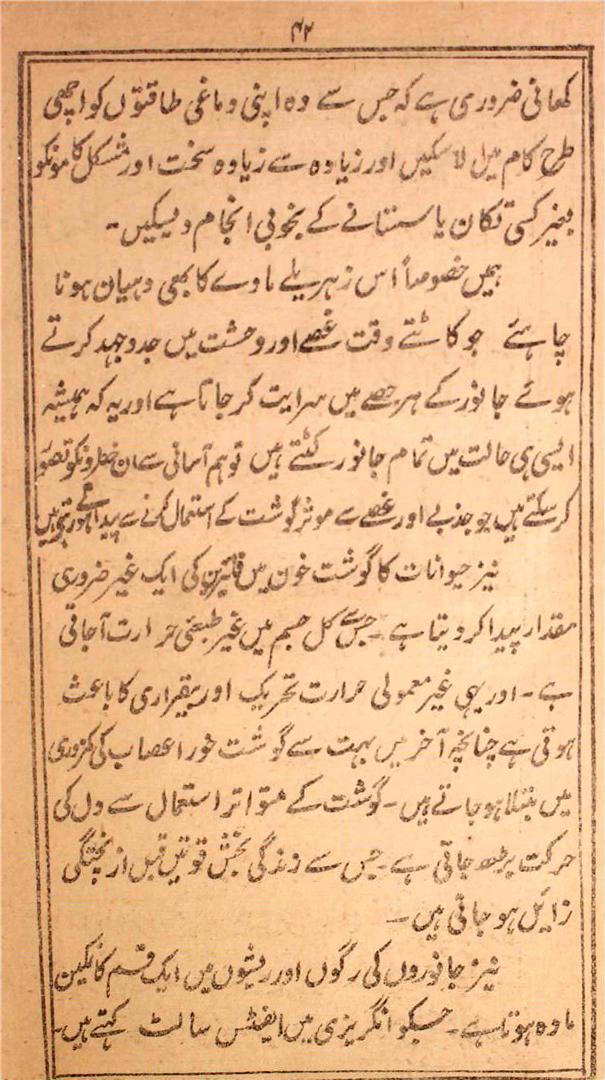 ۴۲
کھانی ضروری ہے کہ جس سے وہ اپنی دماغی طاقتوں کو اچھی
طرح کام میں لا سکیں اور زیادہ سے زیادہ سخت اور مشکل کامونکو
بغیر کسی تکان یا سستانے کے بخوبی انجام دیسکیں۔
ہمیں خصوصاً اس زہریلے مادے کا بھی دہیان ہونا
چاہئے جو کاٹتے وقت غصے اور وحشت میں جدوجہد کرتے
ہوئے جانور کے ہر حصے میں سرایت کر جاتا ہے اور یہ کہ ہمیشہ
ایسی ہی حالت میں تمام جانور کٹتے ہیں تو ہم آسانی سے ان خطرونکو تصور
کر سکتے ہیں جو جذبے اور غصے سے موثر گوشت کے استعمال کرنے سے پیدا ہوتے ہیں
نیز حیوانات کا گوشت خون میں فائبرن کی ایک غیر ضروری
مقدار پیدا کر دیتا ہے۔ جس سے کل جسم میں غیر طبعی حرارت آجاتی
ہے۔ اور یہی غیر معمولی حرارت تحریک اور بیقراری کا باعث
ہوتی ہے چنانچہ آخر میں بہت سے گوشت خور اعصاب کی کمزوری
میں مبتلا ہو جاتے ہیں۔ گوشت کے متواتر استعمال سے دل کی
حرکت بڑھ جاتی ہے۔ جس سے زندگی بخش قوتیں قبل از پختگی
زایل ہو جاتی ہیں۔
نیز جانوروں کی رگوں اور ریشوں میں ایک قسم کا نمکین
مادہ ہوتا ہے۔ جسکو انگریزی میں سالٹ کہتے ہیں۔